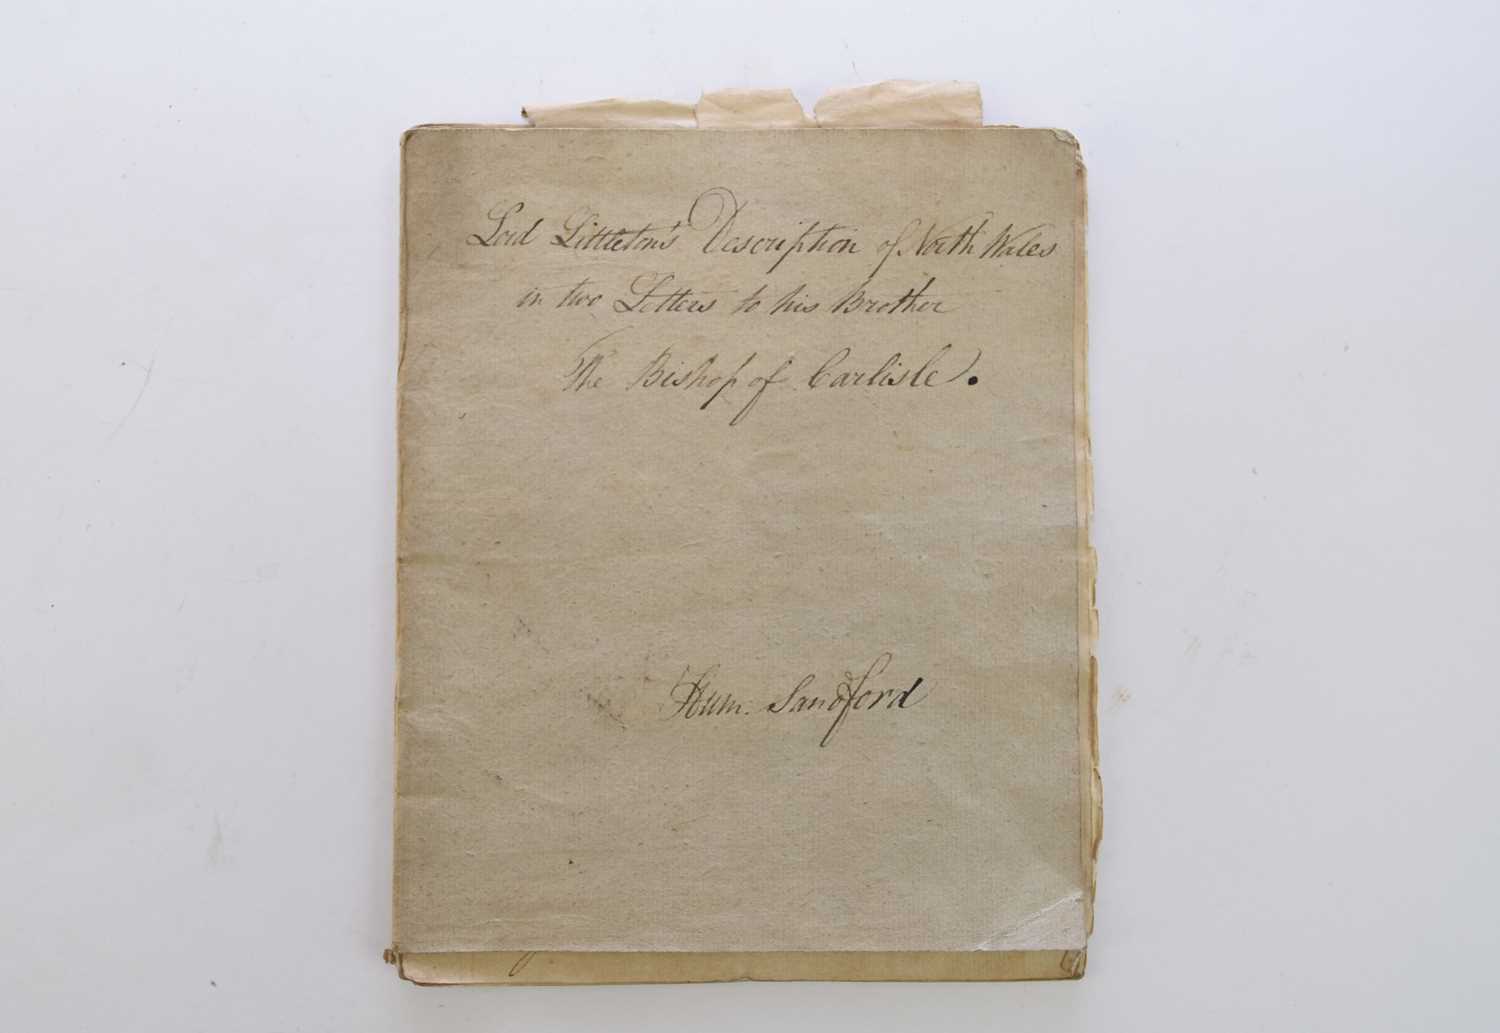 Lord Littleton's Description of North Wales
in two Letters to his Brother
The Bishop of Carlisle.
Hum. Sandford